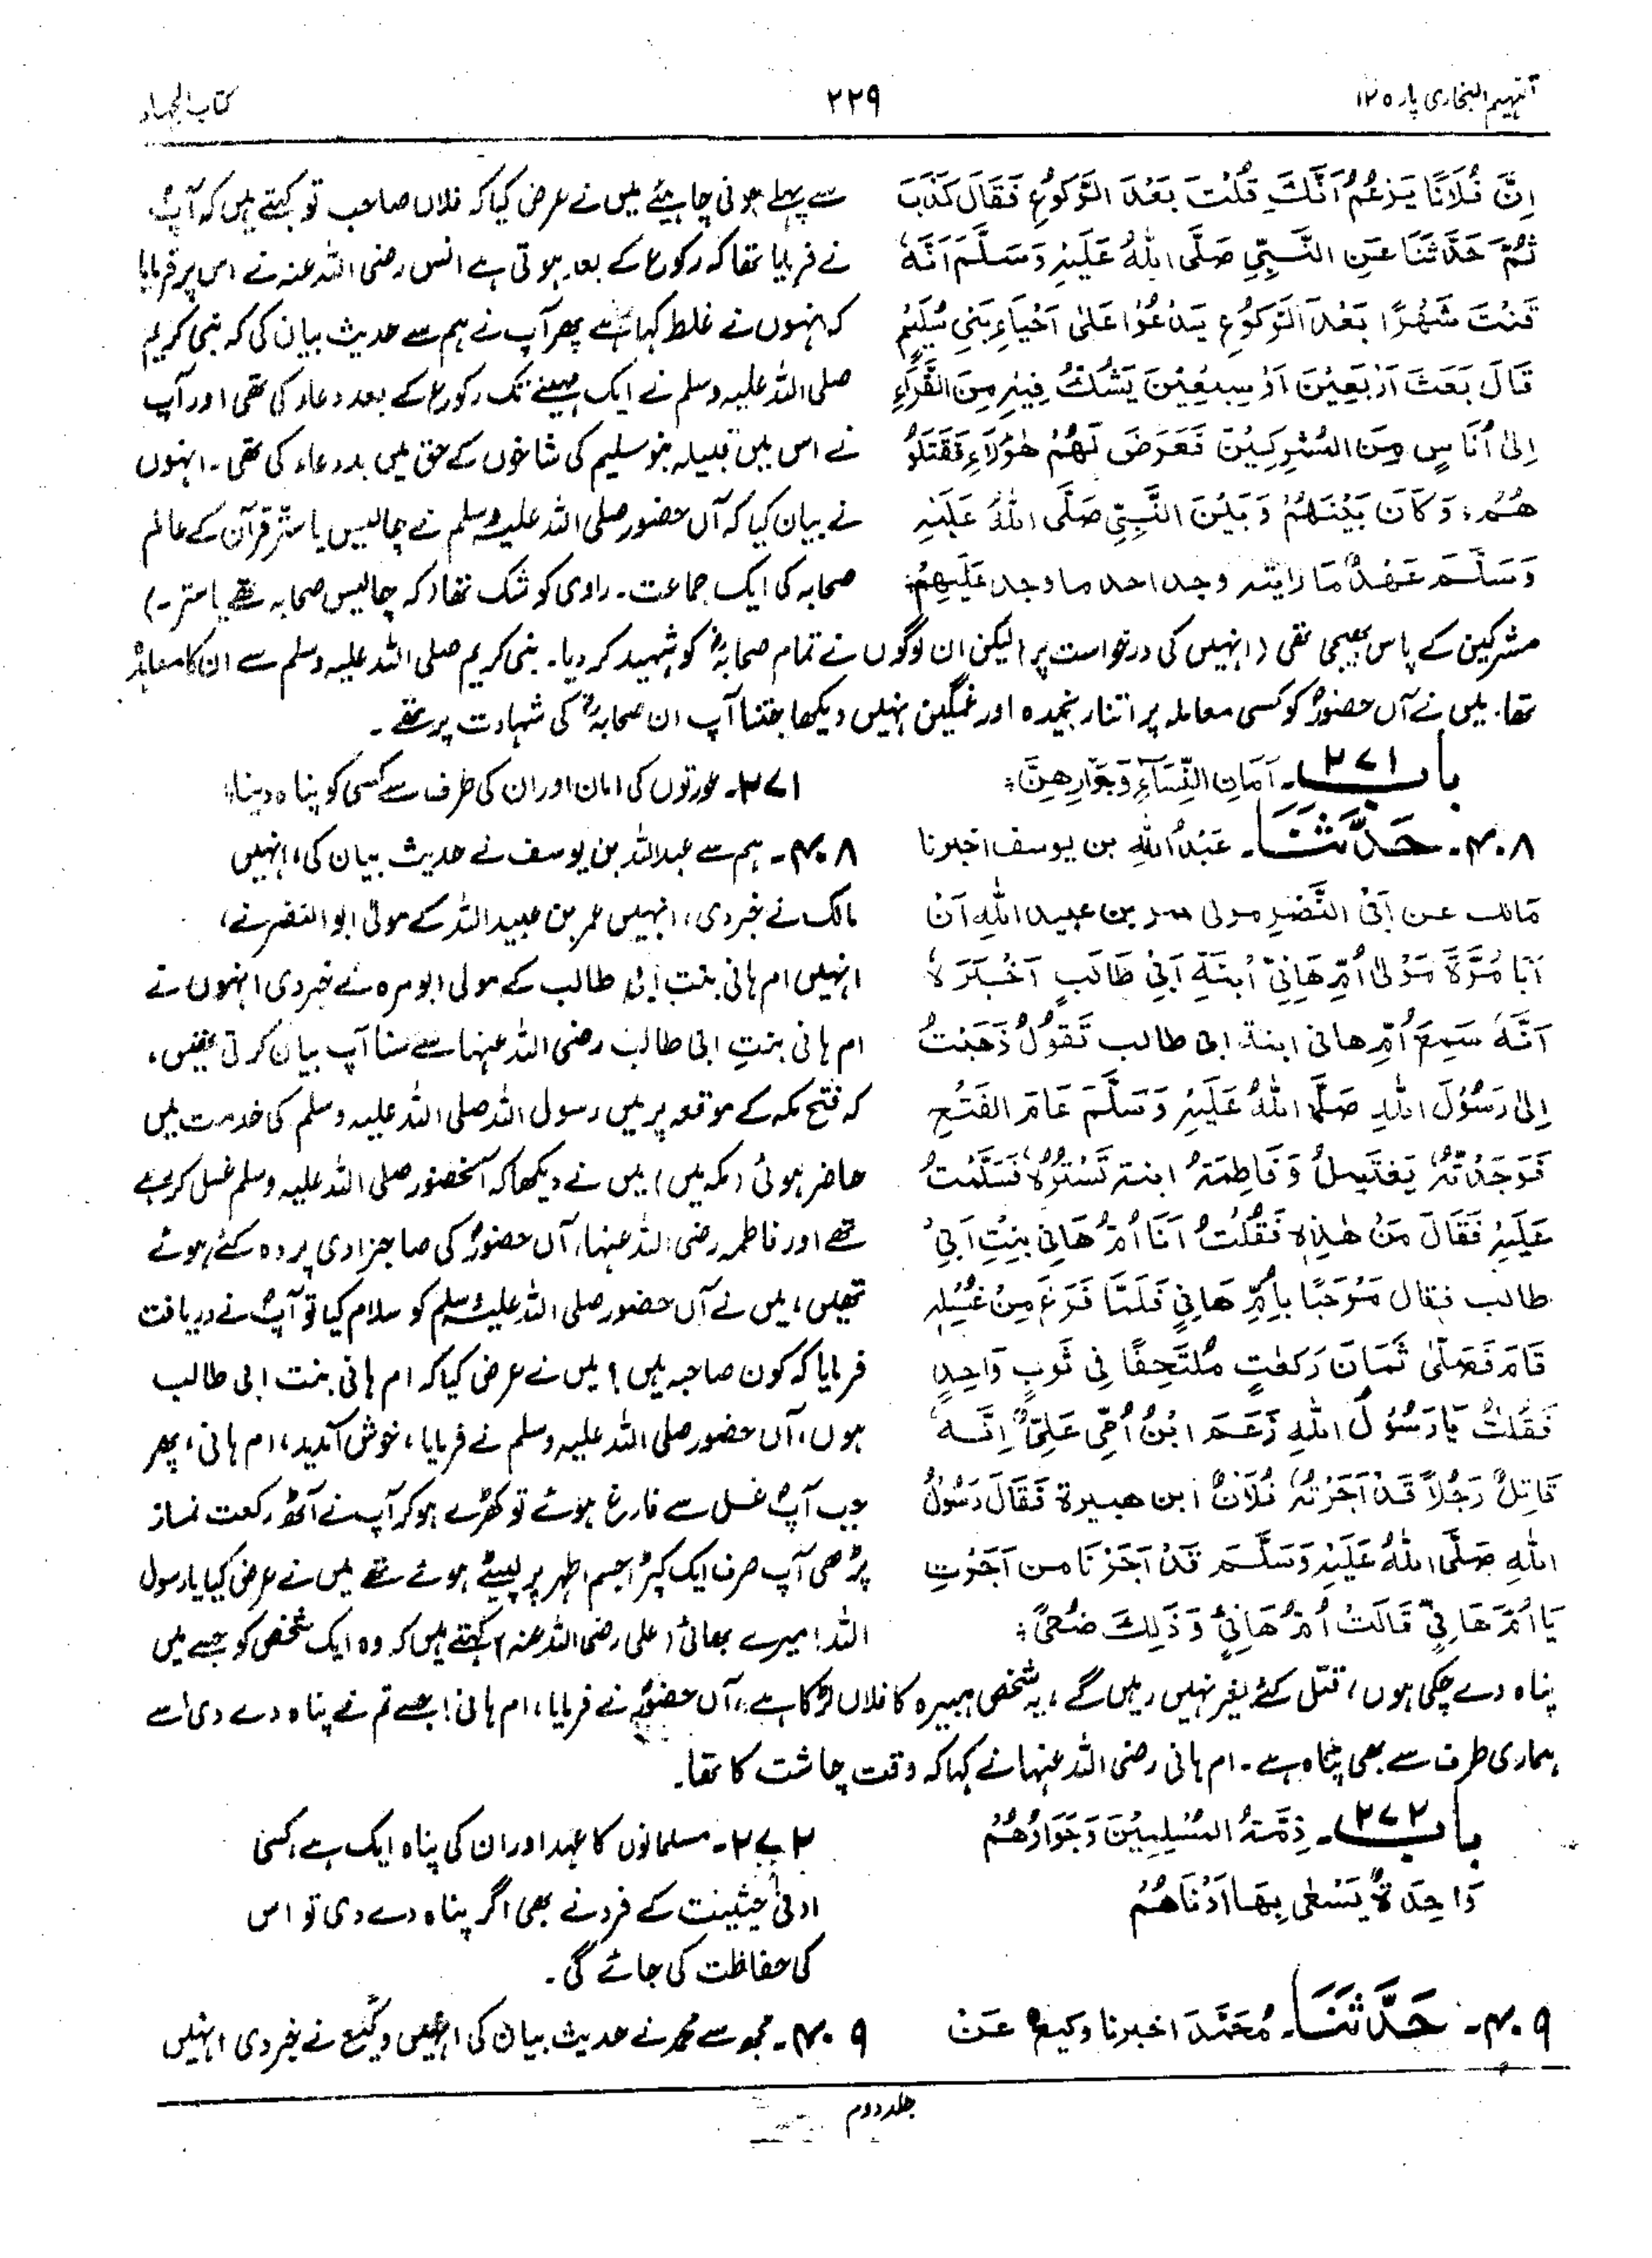 تفہیم البخاری پارہ ۱۲
۲۲۹
کتاب الجہاد
اِنَّ فُلَانًا يَزْعُمُ اَنَّكَ قُلْتَ بَعْدَ الرَّكُوْعِ فَقَالَ كَذَبَ
ثُمَّ حَدَّثَنَا عَنِ النَّبِيِّ صَلَّى اللهُ عَلَيْهِ وَسَلَّمَ اَنَّهٗ
قَنَتَ شَهْرًا بَعْدَ الرَّكُوْعِ يَدْعُوْا عَلٰى اَحْيَاءِ بَنِي سُلَيْمٍ
قَالَ بَعَثَ اَرْبَعِيْنَ اَوْ سبعِيْنَ يَشُكُّ فِيْهِ مِنَ القُرَّاءِ
اِلٰى اُنَاسٍ مِنَ المُشْرِكِيْنَ فَعَرَضَ لَهُمْ هٰؤُلَاءِ فَقَتَلُوْ
هُمْ، وَكَانَ بَيْنَهُمْ وَبَيْنَ النَّبِيِّ صَلَّى اللهُ عَلَيْهِ
وَسَلَّمَ عَهْدٌ مَا رَايته وجد احد ما وجد عَلَيْهِمْ؛
سے پہلے ہونی چاہیئے میں نے عرض کیا کہ فلاں صاحب تو کہتے ہیں کہ آپؓ
نے فرمایا تھا کہ رکوع کے بعد ہوتی ہے انس رضی اللہ عنہ نے اس پر فرمایا
کہ انہوں نے غلط کہا ہے پھر آپ نے ہم سے حدیث بیان کی کہ نبی کریم
صلی اللہ علیہ وسلم نے ایک مہینے تک رکوع کے بعد دعاء کی تھی اور آپ
نے اس میں قبیلہ بنو سلیم کی شاخوں کے حق میں بددعاء کی تھی۔ انہوں
نے بیان کیا کہ آں حضور صلی اللہ علیہ وسلم نے چالیس یا ستّر قرآن کے عالم
صحابہ کی ایک جماعت۔ راوی کو شک تھا (کہ چالیس صحابہ تھے یا ستر۔)
مشرکین کے پاس بھیجی تھی (انہیں کی درخواست پر) لیکن ان لوگوں نے تمام صحابہؓ کو شہید کر دیا۔ نبی کریم صلی اللہ علیہ وسلم سے ان کا معاہدہ
تھا۔ میں نے آں حضورؐ کو کسی معاملہ پر اتنا رنجیدہ اور غمگین نہیں دیکھا جتنا آپ ان صحابہؓ کی شہادت پر تھے۔
باب ۲۷۱۔ اَمَانِ النِّسَآءِ وَجَوَارِهِنَّ؛
۲۷۱۔ عورتوں کی امان اور ان کی طرف سے کسی کو پناہ دینا؛
۴۰۸۔ حَدَّثَنَا۔ عَبْدُ اللهِ بن يوسف اخبرنا
مَالك عن اَبِي النَّضْرِ مولى عمر بن عبيد الله اَنَّ
اَبَا مُرَّةَ مَوْلٰى اُمِّ هَانِيٍّ ابْنَةِ اَبِيْ طَالِبٍ اَخْبَرَهٗ
اَنَّهٗ سَمِعَ اُمَّ هانى ابنة ابى طالب تَقُوْلُ ذَهَبْتُ
اِلٰى رَسُوْلِ اللهِ صَلَّى اللهُ عَلَيْهِ وَسَلَّمَ عَامَ الفَتْحِ
فَوَجَدْتُهٗ يَغْتَسِلُ وَفَاطِمَةُ ابنته تَسْتُرُهٗ فَسَلَّمْتُ
عَلَيْهِ فَقَالَ مَنْ هٰذِهٖ فَقُلْتُ اَنَا اُمُّ هَانِي بِنْتِ اَبِيْ
طالب فقال مَرْحَبًا بِاُمِّ هَانِيٍ فَلَمَّا فَرَغَ مِنْ غُسْلِهٖ
قَامَ فَصَلّٰى ثَمَانَ رَكعٰتٍ مُلْتَحِفًا فِي ثَوبٍ وَاحِدٍ
فَقُلْتُ يَا رَسُوْلَ اللهِ زَعَمَ ابْنُ اُمِّي عَلِيٌّ اِنَّهٗ
قَاتِلٌ رَجُلًا قَدْ اَجَرْتُهٗ فُلَانٌ ابن هبيرة فَقَالَ رَسُوْلُ
اللهِ صَلَّى اللهُ عَلَيْهِ وَسَلَّمَ قَدْ اَجَرْنَا من اَجَرْتِ
يَا اُمَّ هَانِيٍّ قَالَتْ اُمُّ هَانِيٍّ وَذَلِكَ ضُحًى؛
۴۰۸۔ ہم سے عبداللہ بن یوسف نے حدیث بیان کی، انہیں
مالک نے خبر دی، انہیں عمر بن عبید اللہ کے مولیٰ ابو النضر نے،
انہیں ام ہانی بنت ابی طالب کے مولی ابو مرہ نے خبر دی انہوں نے
ام ہانی بنتِ ابی طالب رضی اللہ عنہا سے سنا آپ بیان کرتی تھیں،
کہ فتح مکہ کے موقعہ پر میں رسول اللہ صلی اللہ علیہ وسلم کی خدمت میں
حاضر ہوئی (مکہ میں) میں نے دیکھا کہ آنحضور صلی اللہ علیہ وسلم غسل کر رہے
تھے اور فاطمہ رضی اللہ عنہا، آں حضورؐ کی صاحبزادی پردہ کئے ہوئے
تھیں، میں نے آں حضور صلی اللہ علیہ وسلم کو سلام کیا تو آپؐ نے دریافت
فرمایا کہ کون صاحبہ ہیں؟ میں نے عرض کیا کہ ام ہانی بنت ابی طالب
ہوں، آں حضور صلی اللہ علیہ وسلم نے فرمایا، خوش آمدید، ام ہانی، پھر
جب آپؐ غسل سے فارغ ہوئے تو کھڑے ہو کر آپ نے آٹھ رکعت نماز
پڑھی آپ صرف ایک کپڑا جسم اطہر پر لپیٹے ہوئے تھے میں نے عرض کیا یا رسول
اللہ! میرے بھائی (علی رضی اللہ عنہ) کہتے ہیں کہ وہ ایک شخص کو جسے میں
پناہ دے چکی ہوں، قتل کئے بغیر نہیں رہیں گے، یہ شخص ہبیرہ کا فلاں لڑکا ہے، آں حضورؐ نے فرمایا، ام ہانی! جسے تم نے پناہ دے دی اسے
ہماری طرف سے بھی پناہ ہے۔ ام ہانی رضی اللہ عنہا نے کہا کہ وقت چاشت کا تھا۔
باب ۲۷۲۔ ذِمَّةُ المُسْلِمِيْنَ وَجَوَارُهُمْ
وَاحِدَةٌ يَسْعٰى بِهَا اَدْنَاهُمْ
۲۷۲۔ مسلمانوں کا عہد اور ان کی پناہ ایک ہے، کسی
ادنیٰ حیثیت کے فرد نے بھی اگر پناہ دے دی تو اس
کی حفاظت کی جائے گی۔
۴۰۹۔ حَدَّثَنَا۔ مُحَمَّدَ اخبرنا وكيعٌ عَنْ
۴۰۹۔ مجھ سے محمد نے حدیث بیان کی انہیں وکیع نے خبر دی انہیں
جلد دوم